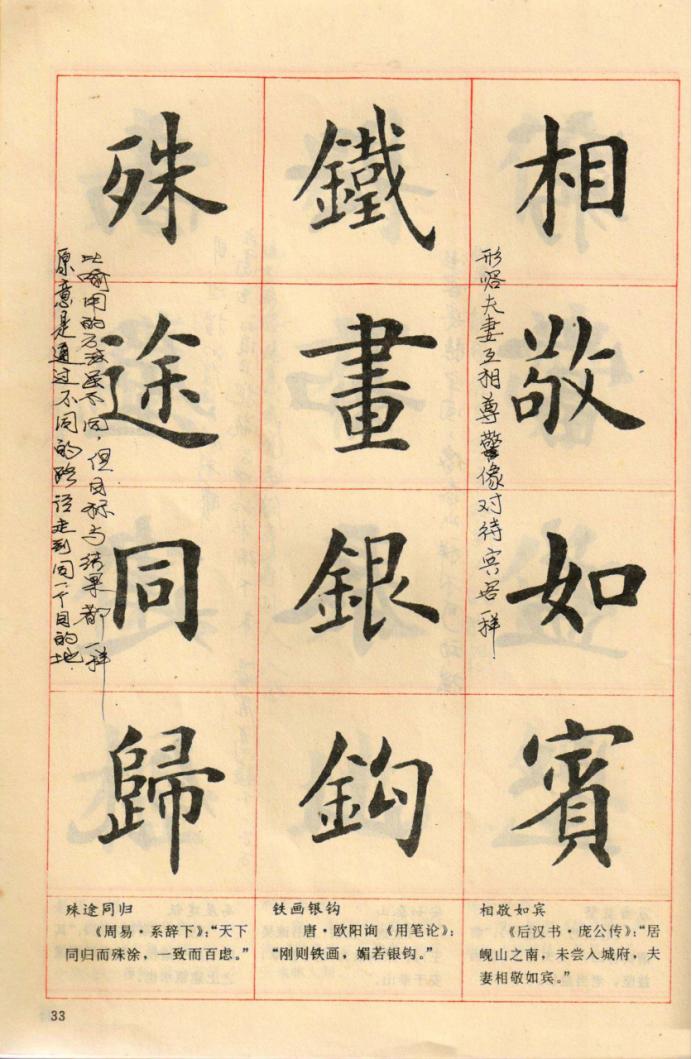 相敬如賓
形容夫妻互相尊警像对待宾客一样.
鐵畫銀鈎
殊途同歸
比喻用的方法虽不同，但目标与结果都一样
原意是通过不同的路径走到同一个目的地.
相敬如宾
《后汉书·庞公传》：“居
岘山之南，未尝入城府，夫
妻相敬如宾。”
铁画银钩
唐·欧阳询《用笔论》：
“刚则铁画，媚若银钩。”
殊途同归
《周易·系辞下》：“天下
同归而殊涂，一致而百虑。”
33